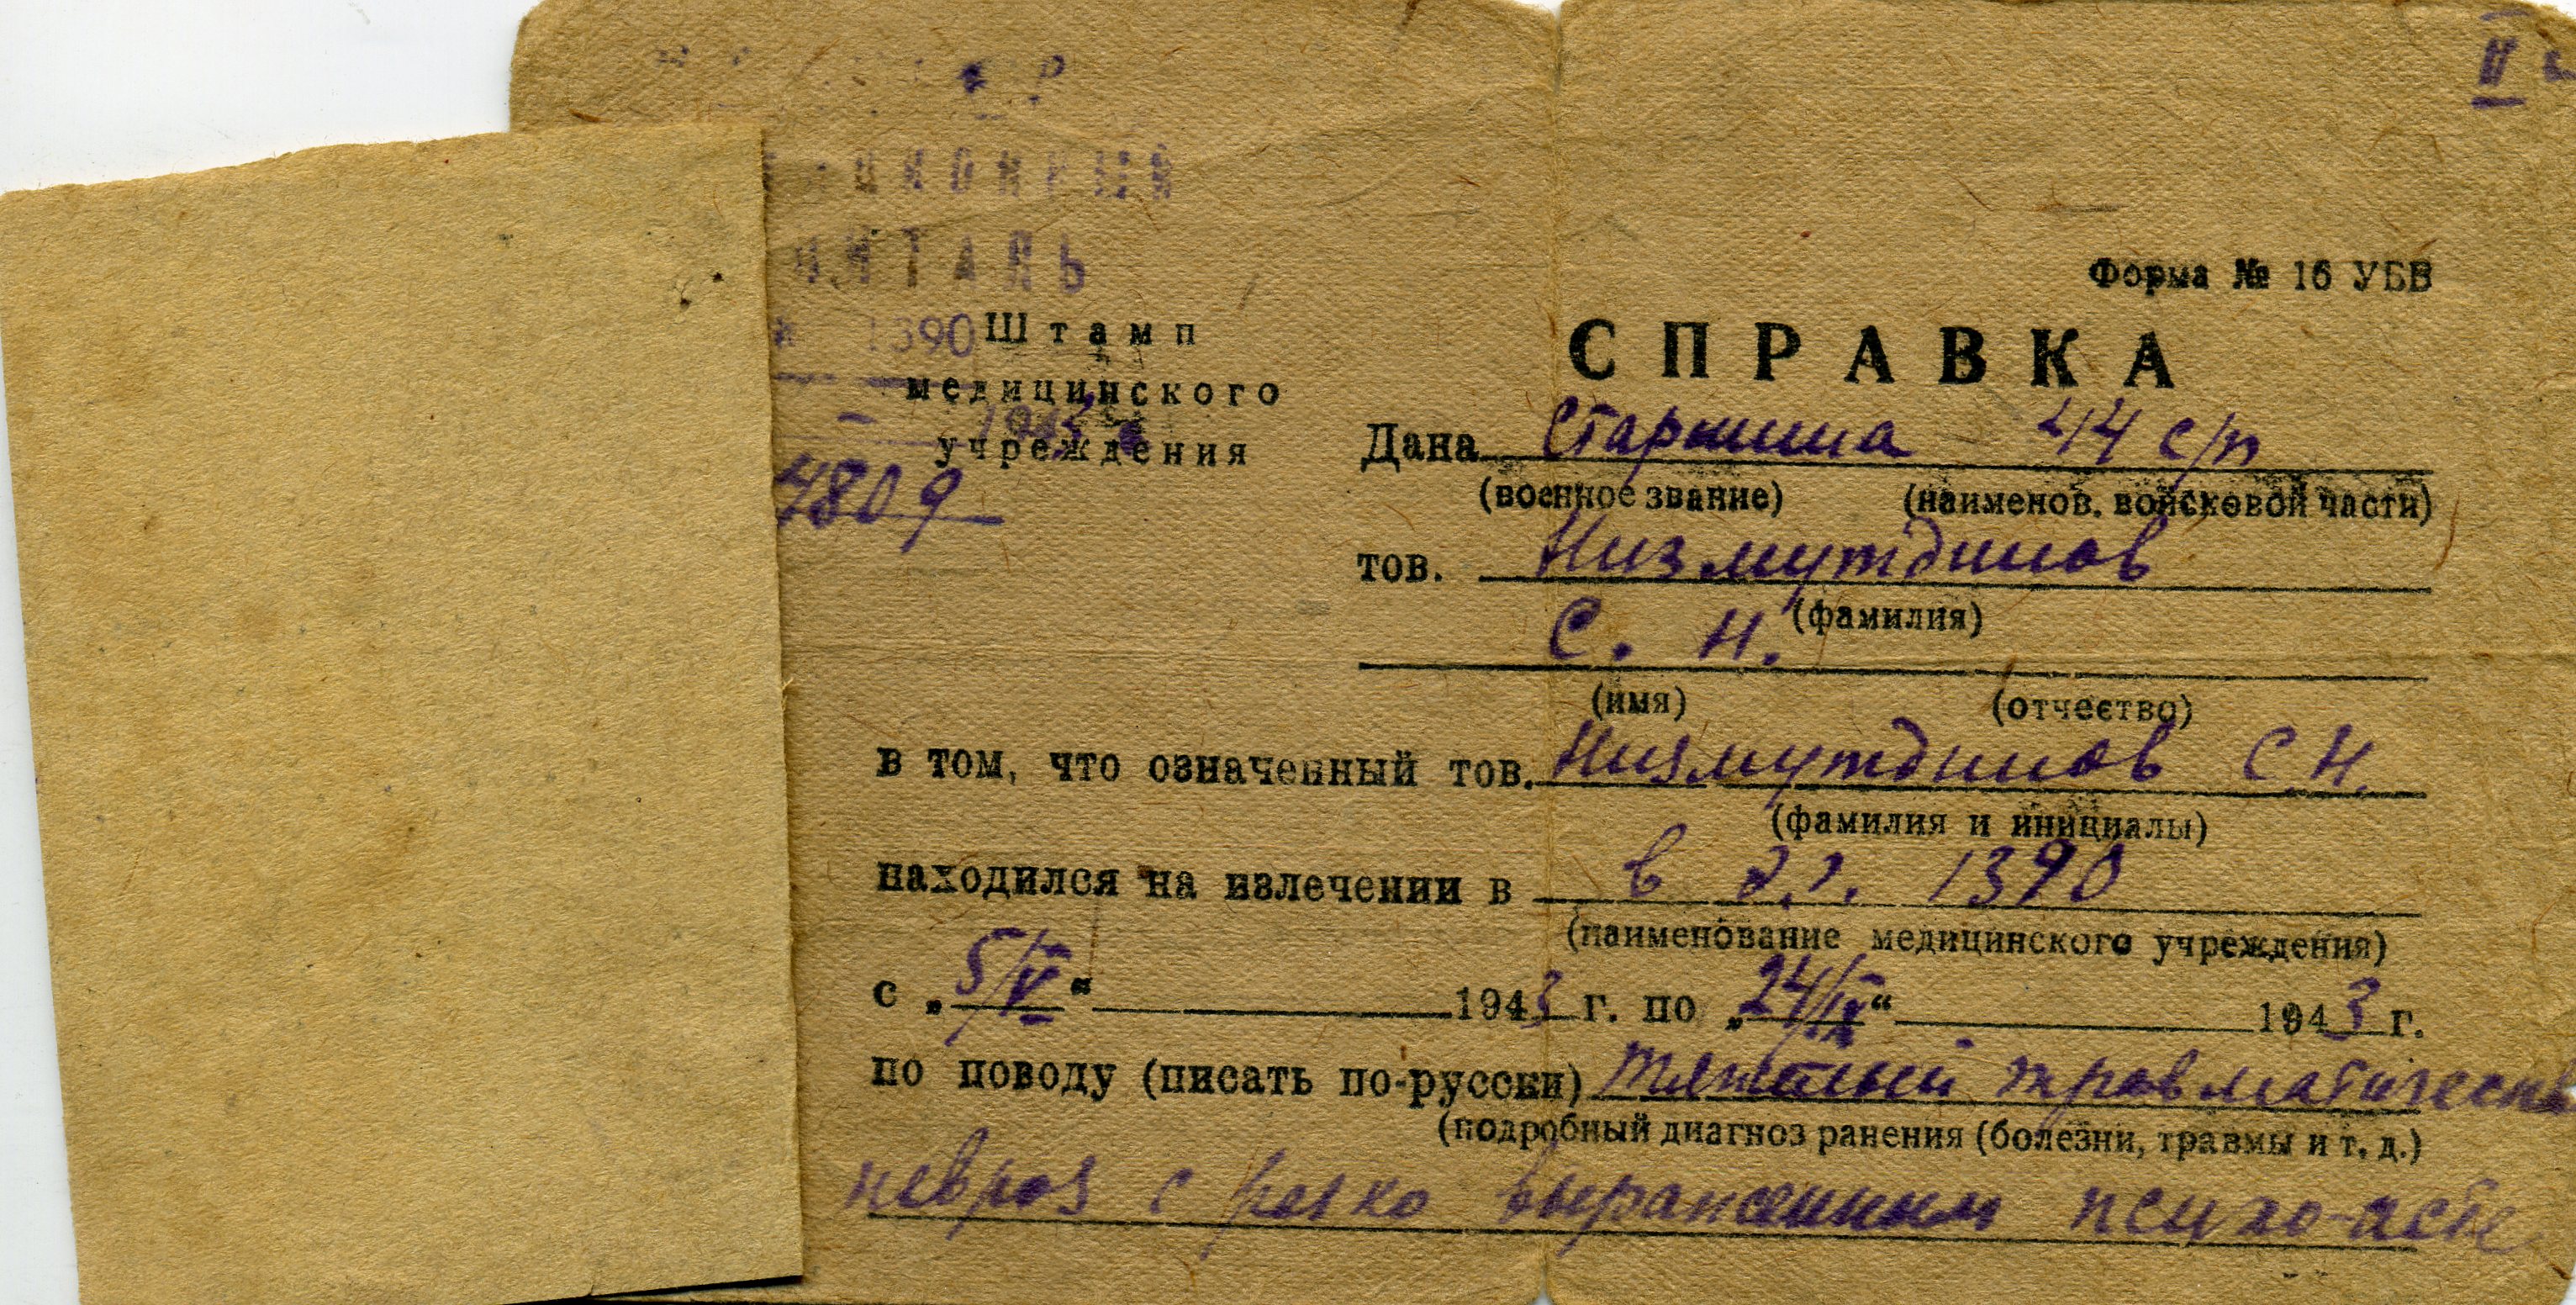 II
Форма № 16 УБВ
1390 Штамп
медицинского
учреждения
1943
4809
СПРАВКА
Дана старшина 414 с/п
(военное звание) (наименов. войсковой части)
тов. Низмутдинов
(фамилия)
С. Н.
(имя) (отчество)
в том, что означенный тов. Низмутдинов С Н.
(фамилия и инициалы)
находился на излечении в в э.г. 1390
(наименование медицинского учреждения)
с „5/V“ 1943 г. по „24/IX“ 1943 г.
по поводу (писать по-русски) тяжелый травматическ
(подробный диагноз ранения (болезни, травмы и т. д.)
невроз с резко выраженным психо-асте